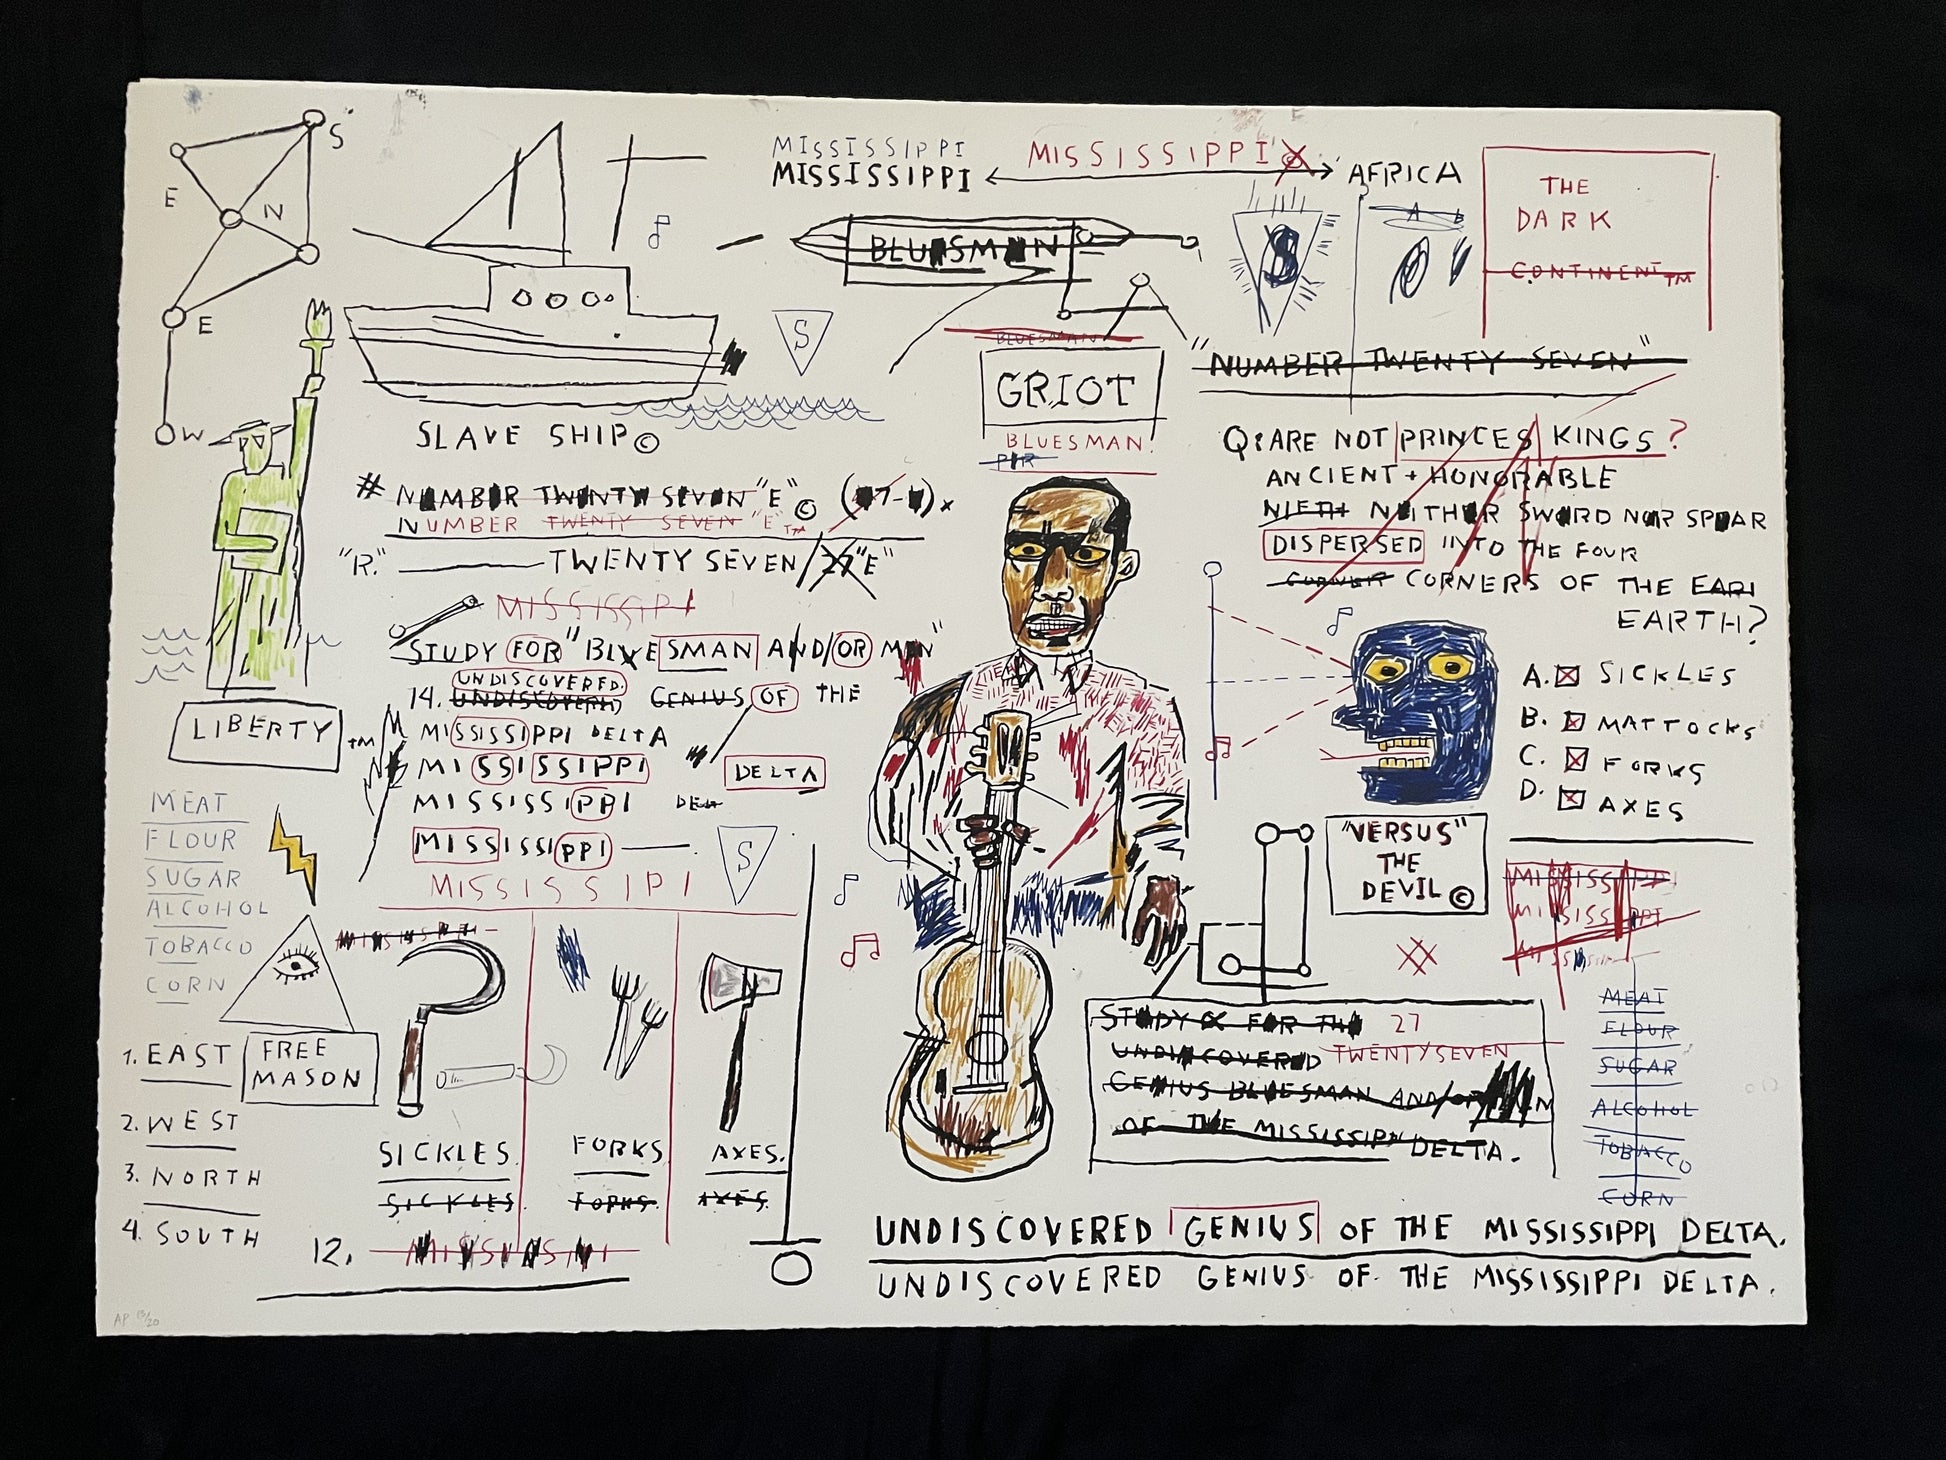 S
E
N
E
W
MISSISSIPPI
MISSISSIPPI
MISSISSIPPI
AFRICA
THE
DARK
CONTINENT TM
BLUESMAN
S
A B
S
BLUESMAN
GRIOT
BLUESMAN.
"NUMBER TWENTY SEVEN"
SLAVE SHIP ©
# NUMBER TWENTY SEVEN "E" ©
NUMBER TWENTY SEVEN "E" TM
"R." TWENTY SEVEN/27"E"
MISSISSIPI
STUDY FOR "BLUESMAN AND/OR MAN"
UNDISCOVERED.
14. UNDISCOVERED GENIUS OF THE
MISSISSIPPI DELTA
MISSISSIPPI
DELTA
MISSISSIPPI
MISSISSIPPI
MISSISSIPI
S
LIBERTY TM
MEAT
FLOUR
SUGAR
ALCOHOL
TOBACCO
CORN
FREE
MASON
1. EAST
2. WEST
3. NORTH
4. SOUTH
SICKLES.
SICKLES
FORKS
FORKS.
AXES.
AXES.
12. MISSISSIPI
Q: ARE NOT PRINCES KINGS?
ANCIENT + HONORABLE
NIETH NEITHER SWORD NOR SPEAR
DISPERSED INTO THE FOUR
CORNER CORNERS OF THE EART
EARTH?
A. SICKLES
B. MATTOCKS
C. FORKS
D. AXES
"VERSUS"
THE
DEVIL ©
MISSISSIPPI
MISSISSIPPI
STUDY FOR THE 27
UNDISCOVERED TWENTYSEVEN
GENIUS BLUESMAN AND/OR MEN
OF THE MISSISSIPPI DELTA.
MEAT
FLOUR
SUGAR
ALCOHOL
TOBACCO
CORN
UNDISCOVERED GENIUS OF THE MISSISSIPPI DELTA.
UNDISCOVERED GENIUS OF THE MISSISSIPPI DELTA.
AP 13/20